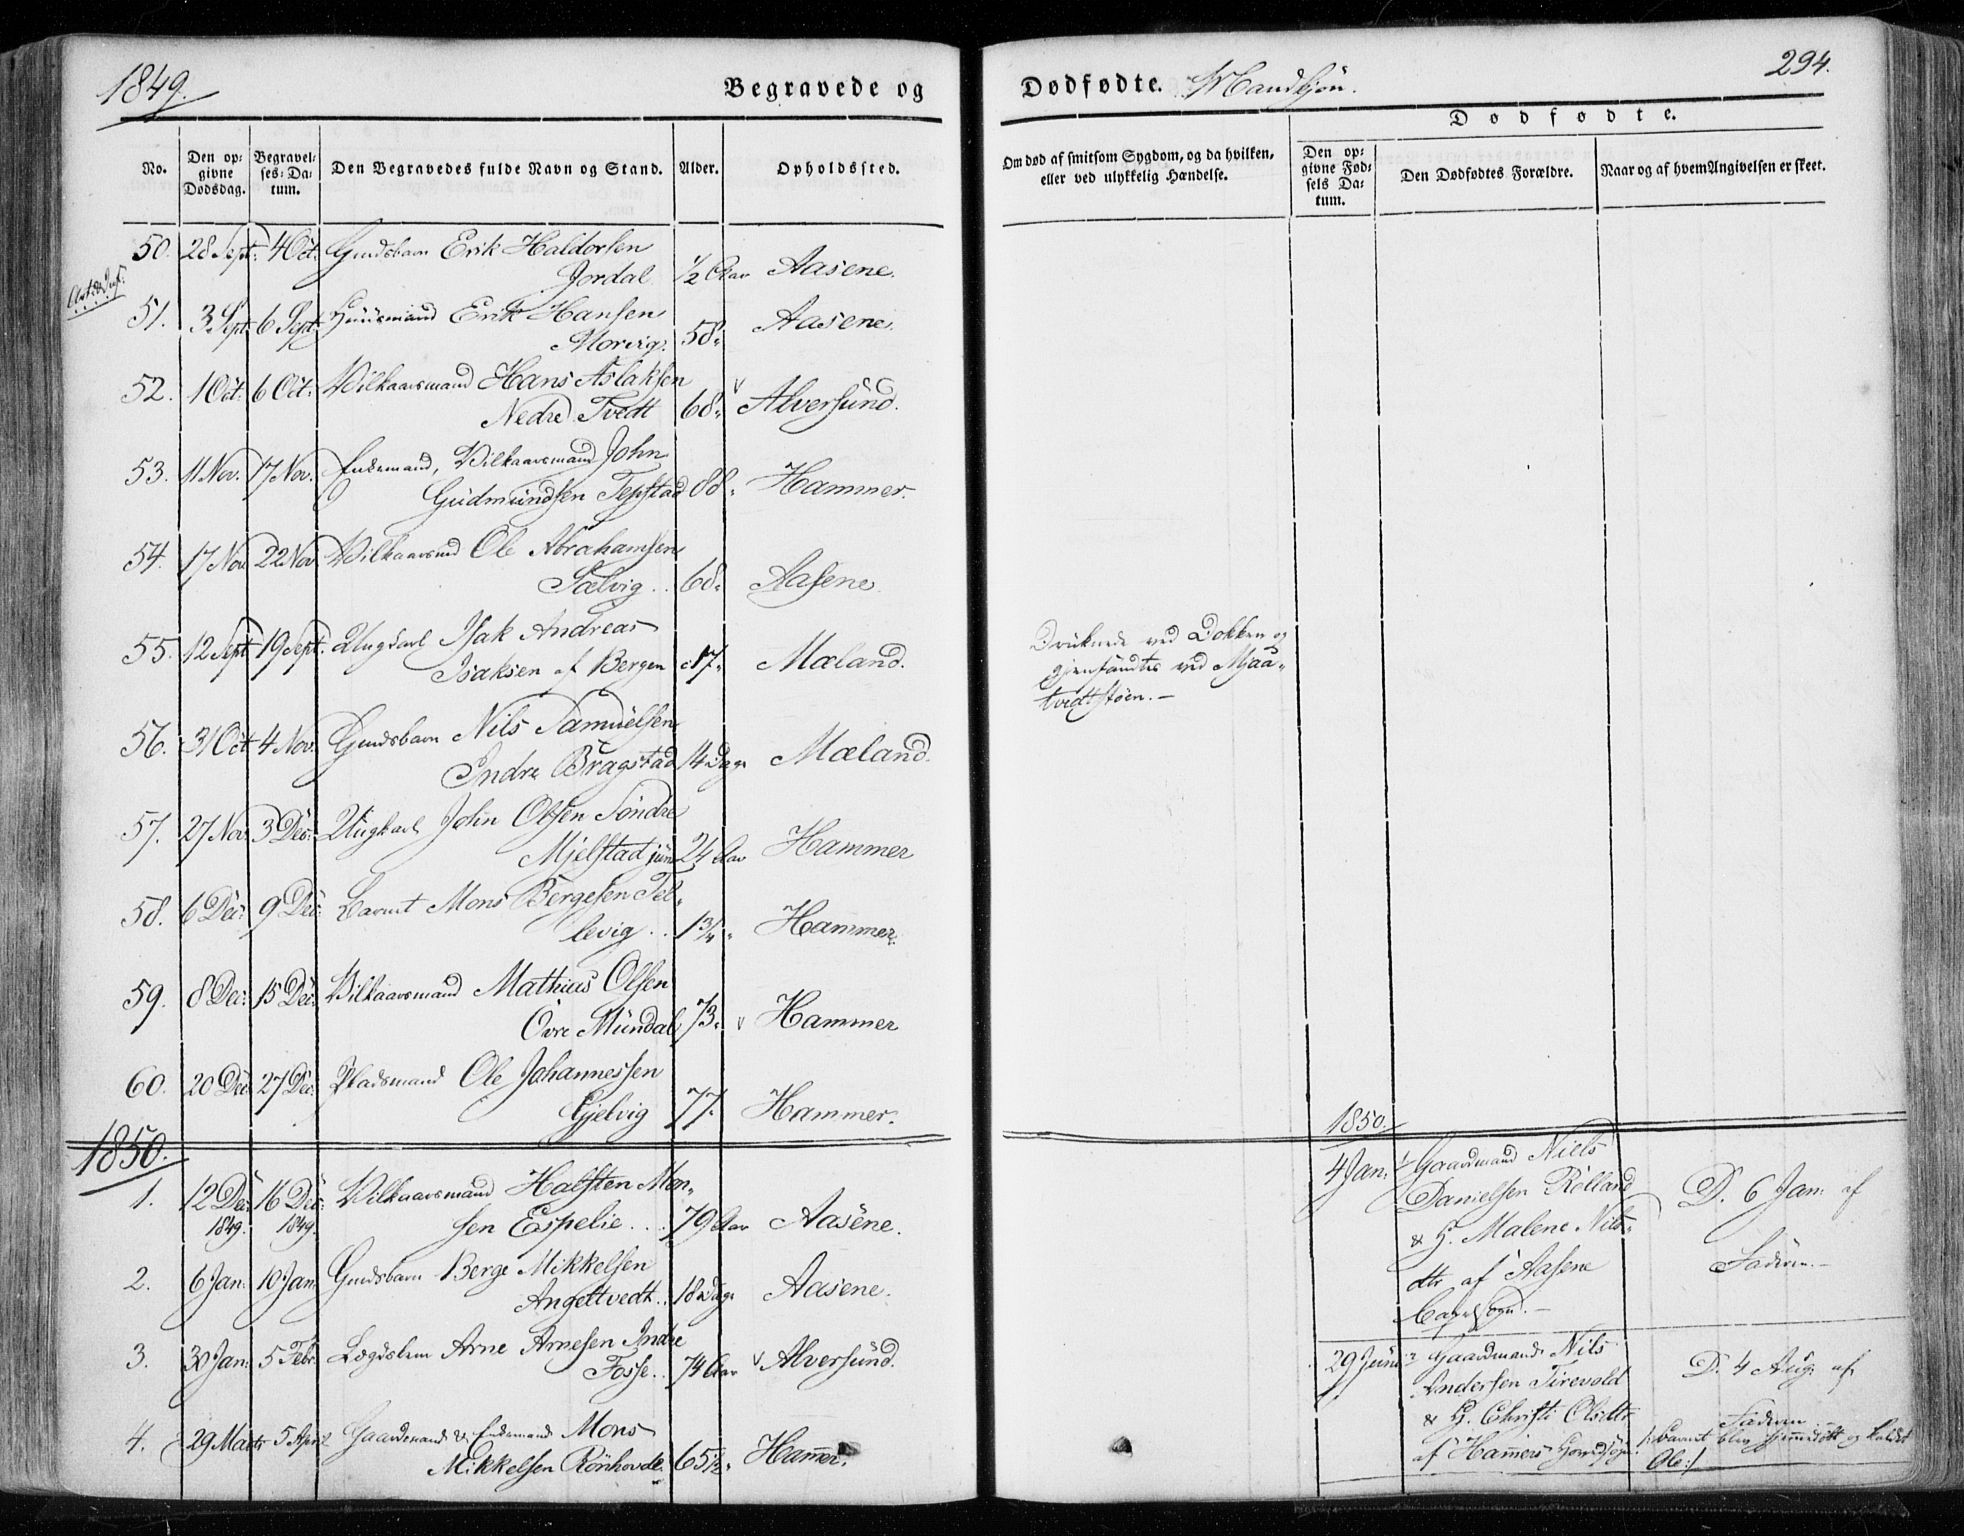 1849.
Begravede og
Dødfødte. Mandkjøn.
294.
No.
Den op-
givne
Dødsdag.
Begravel-
ses-Da-
tum.
Den Begravedes fulde Navn og Stand.
Alder.
Opholdssted.
Om død af smitsom Sygdom, og da hvilken,
eller ved ulykkelig Hændelse.
Dødfødte.
Den op-
givne Fød-
sels Da-
tum.
Den Dødfødtes Forældre.
Naar og af hvem Angivelsen er skeet.
50. 28 Sept. 4 Oct. Erik Haldorsen
Jordal ½ Aar Aasene.
51. 3 Sept 6 Sept. Huusmand Erik Hansen
Morvig. 58. Aasene.
52. 1 Oct. 6 Oct. Vilkaarsmand Hans Aslaksen
Nedre Tvedt 68. v Alversund.
53. 11 Nov. 17 Nov. Enkemand, Vilkaarsmand John
Gudmundsen Tepstad 88. Hammer.
54. 17 Nov 22 Nov Vilkaarsmd Ole Abrahamsen
Sælvig .. 68. Aasene
55. 12 Sept 19 Sept. Ungkarl Isak Andreas
Isaksen af Bergen 17. Mæland.
Druknede ved Dokken og
gjenfandtes ved Mjaa-
tvedtstøen. —
56. 31 Oct 4 Nov. Nils Samuelsen
Indre Bragstad 14 Dage Mæland.
57. 27 Nov 3 Dec. Ungkarl John Olsen Søndre
Mjelstad jun 24 Aar Hammer
58. 6 Dec. 9 Dec. Barnet Mons Bergesen Tel-
levig .. 1¾. Hammer.
59. 8 Dec. 15 Dec. Vilkaarsmand Mathias Olsen
Övre Mundal 73. v Hammer
60. 20 Dec 27 Dec. Pladsmand Ole Johannessen
Gjelvig 77. Hammer.
1850.
1. 12 Dec. 16 Dec. Vilkaarsmand Halsten Mon-
1849. 1849. sen Espelie... 79 Aar Aasene.
2. 6 Jan. 10 Jan. Berge Mikkelsen
Angeltvedt.. 18 Dage Aasene.
3. 30 Jan. 5 Febr. Lægdslem Arne Arnesen Indre
Fosse.. 74 Aar v Alversund.
4. 29 Marts 5 April Gaardmand & Enkemand Mons
Mikkelsen Rønhovde. 65½. Hammer.
1850.
4 Jan. 1/ Gaardmand Niels
Danielsen Rølland
& H. Malene Nils-
dtr af Aasene
Capelsogn. —
D. 6 Jan. af
Faderen. —
29 Juni 2 Gaardmand Nils
Andersen Tirevold
& H. Christi Olsdtr
af Hamers Hovedsogn.
D. 4 Aug. af
Faderen
/: Barnet blev hjemmedøbt og kaldet
Ole :/